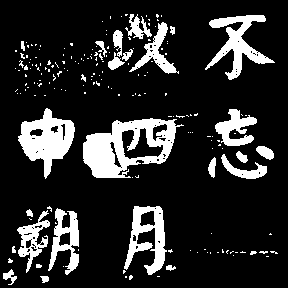 不忘
以四月
申朔